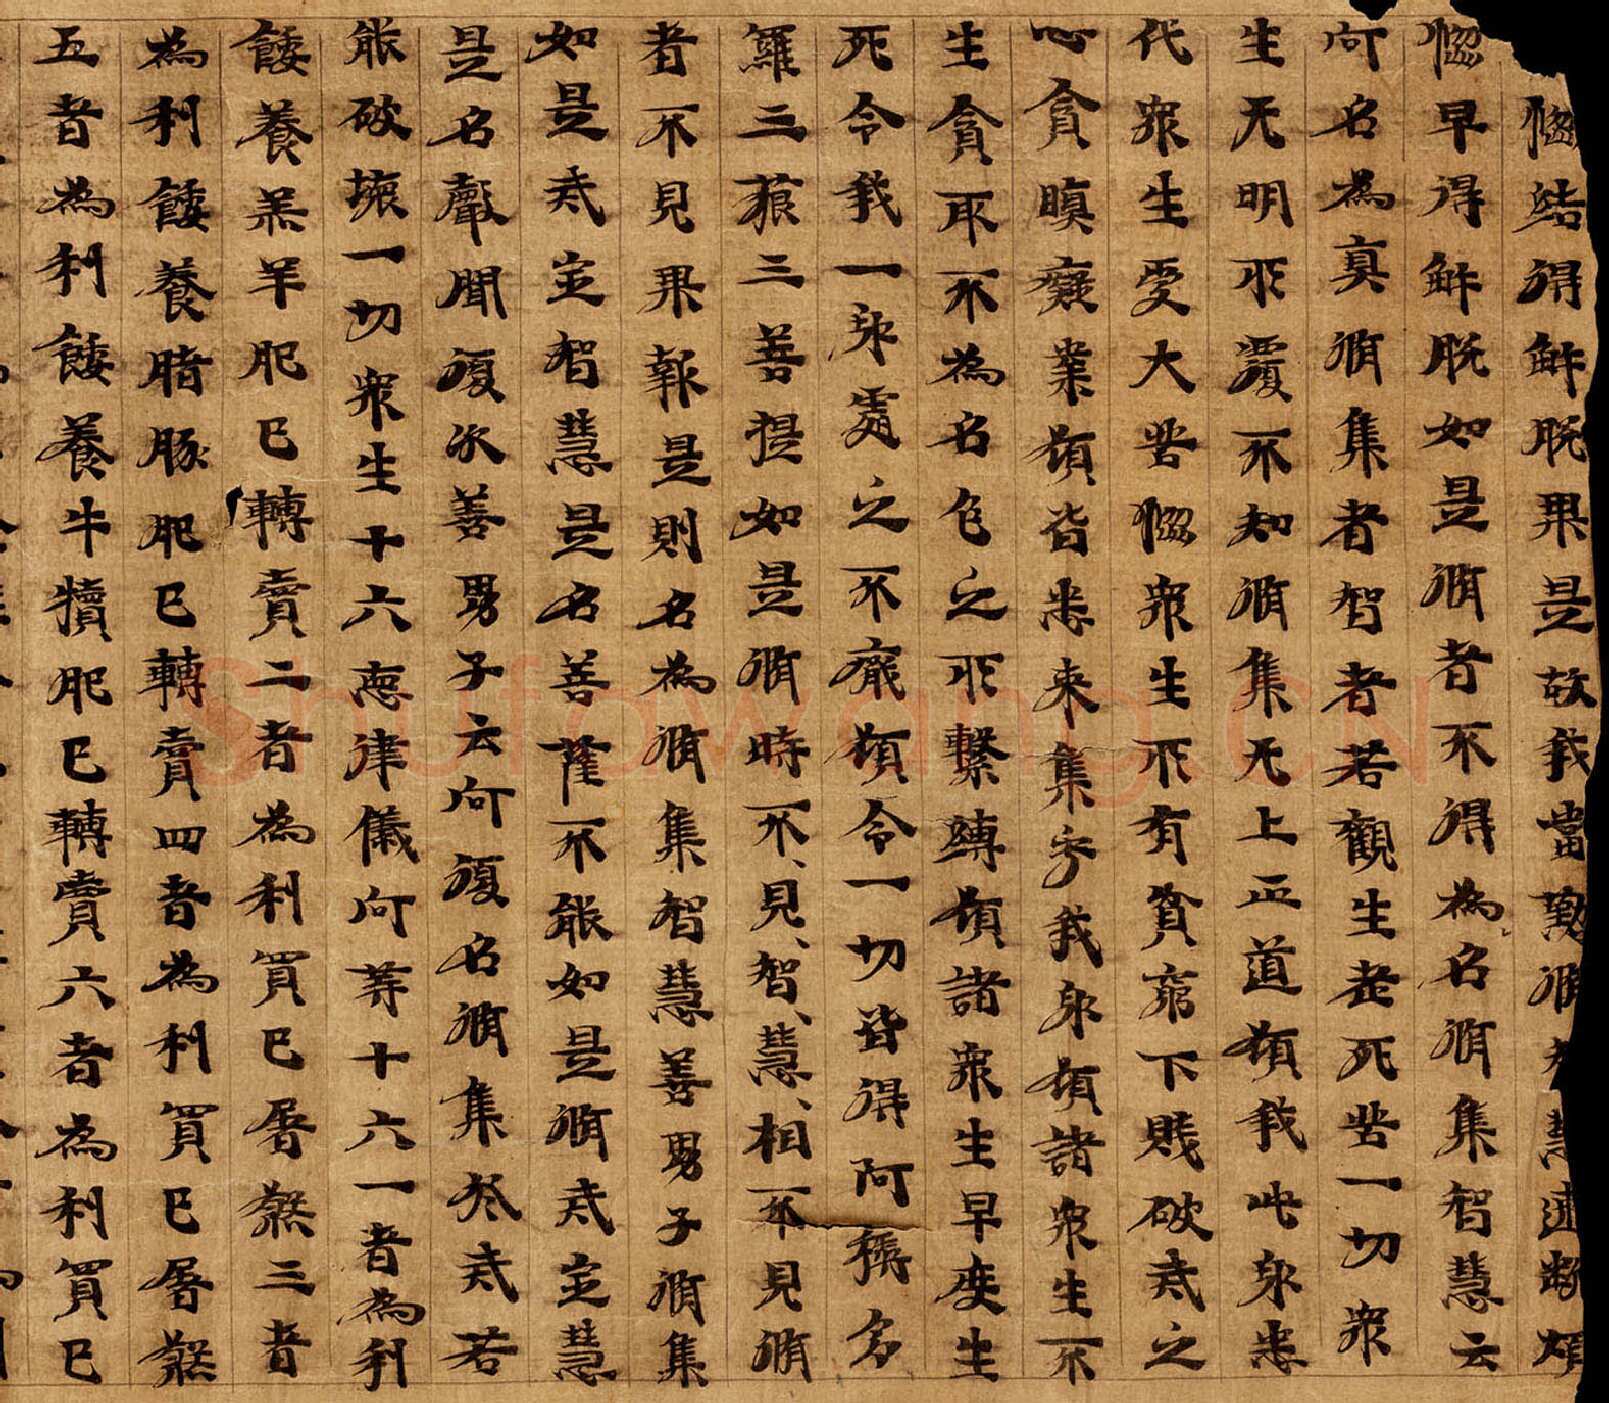 惱結得解脫果是故我當懃脩智慧速斷煩
惱早得解脫如是脩者不得為名脩集智慧云
何名為真脩集者智者若觀生老死苦一切衆
生无明所覆不知脩集无上正道願我此身悉
代衆生受大苦惱衆生所有貧窮下賤破戒之
心貪瞋癡業願皆悉来集于我身願諸衆生不
生貪取不為名色之所繫縛願諸衆生早度生
死令我一身處之不厭願令一切皆得阿耨多
羅三藐三菩提如是脩時不見智慧相不見脩
者不見果報是則名為脩集智慧善男子脩集
如是戒定智慧是名菩薩不能如是脩戒定慧
是名聲聞復次善男子云何復名脩集於戒若
能破壞一切衆生十六惡律儀何等十六一者為利
餧養羔羊肥已轉賣二者為利買已屠煞三者
為利餧養猪豚肥已轉賣四者為利買已屠煞
五者為利餧養牛犢肥已轉賣六者為利買已
Shufawang.CN